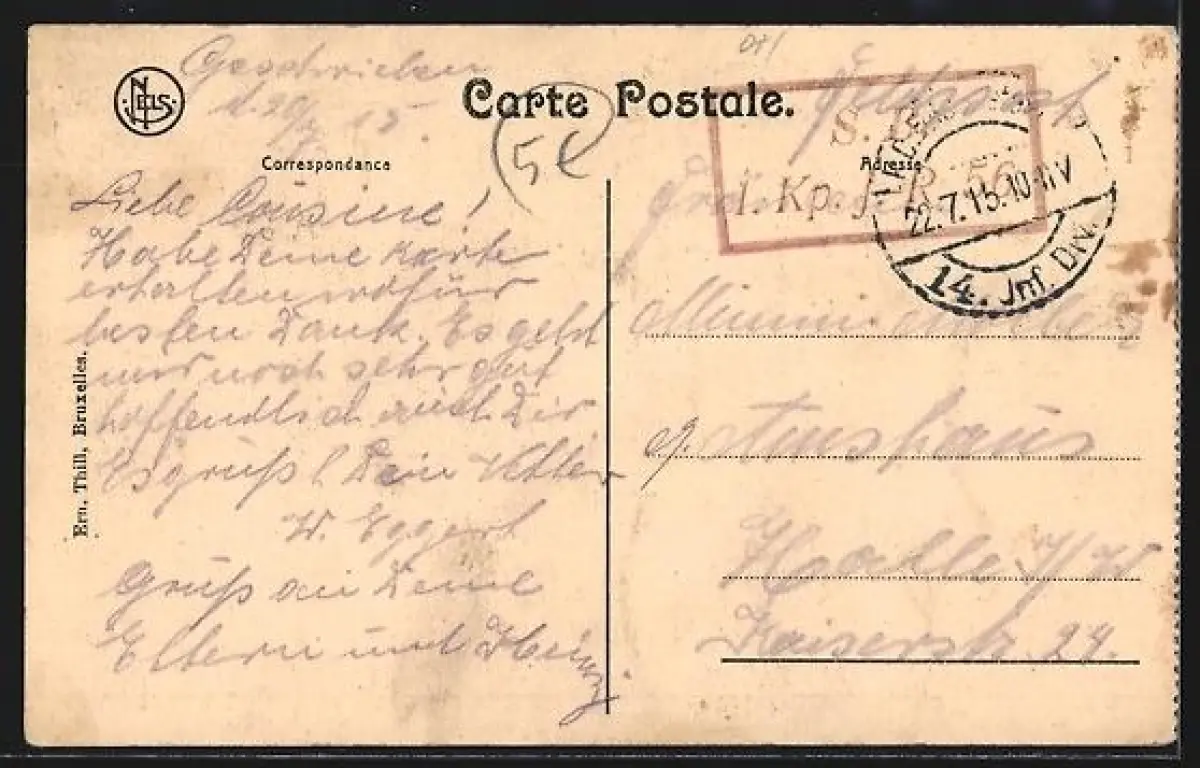 Geschrieben
d. 20 7 15.
NELS
Carte Postale.
Correspondance
Adresse
5€
Liebe Cousine!
Habe Deine Karte
erhalten wofür
besten Dank. Es geht
mir noch sehr gut
hoffendlich auch Dir
Es grüßt Dein Vetter
W. Eggert
Gruß an Deine
Eltern und Heinz.
Ern. Thill, Bruxelles.
Feldpost
S. B.
1. Kp. J. R. 56
22.7.15. 10-11 V
14. Jnf. Div.
Amthaus
Halle i/W
Kaiserstr. 24.